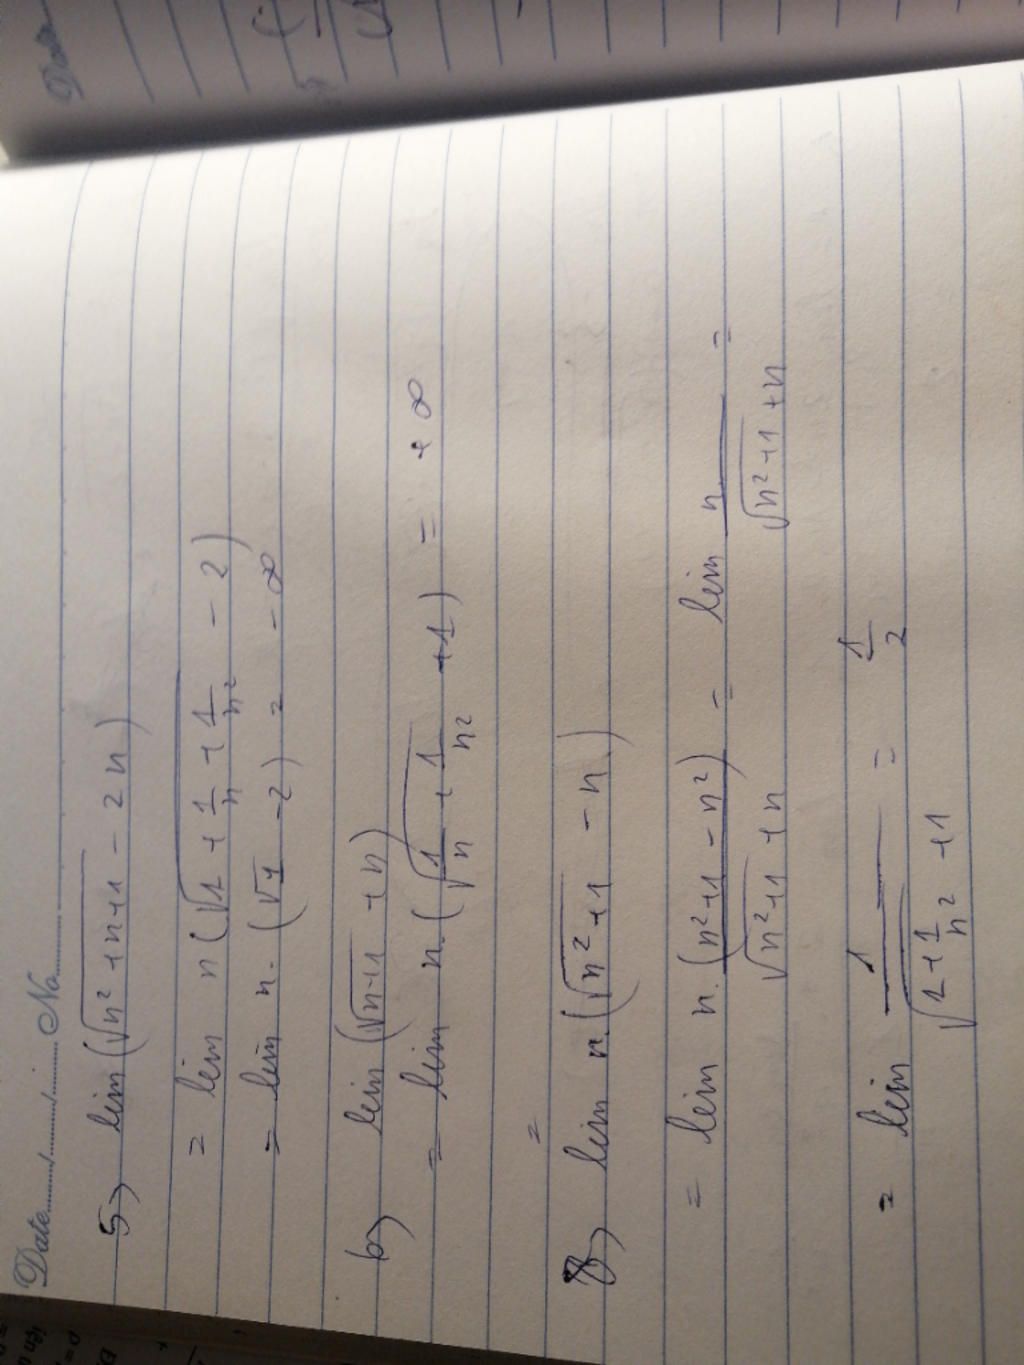 Date....../....../...... No.
5) lim (√(n² + n + 1) - 2n)
= lim n (√(1 + 1/n + 1/n²) - 2)
= lim n. (√1 - 2) = - ∞
6) lim (√(n+1) + n)
= lim n. (√(1/n + 1/n²) + 1) = + ∞
=
8) lim n. (√(n² + 1) - n)
= lim n. (n² + 1 - n²) / (√(n² + 1) + n) = lim n / (√(n² + 1) + n) =
= lim 1 / (√(1 + 1/n²) + 1) = 1/2